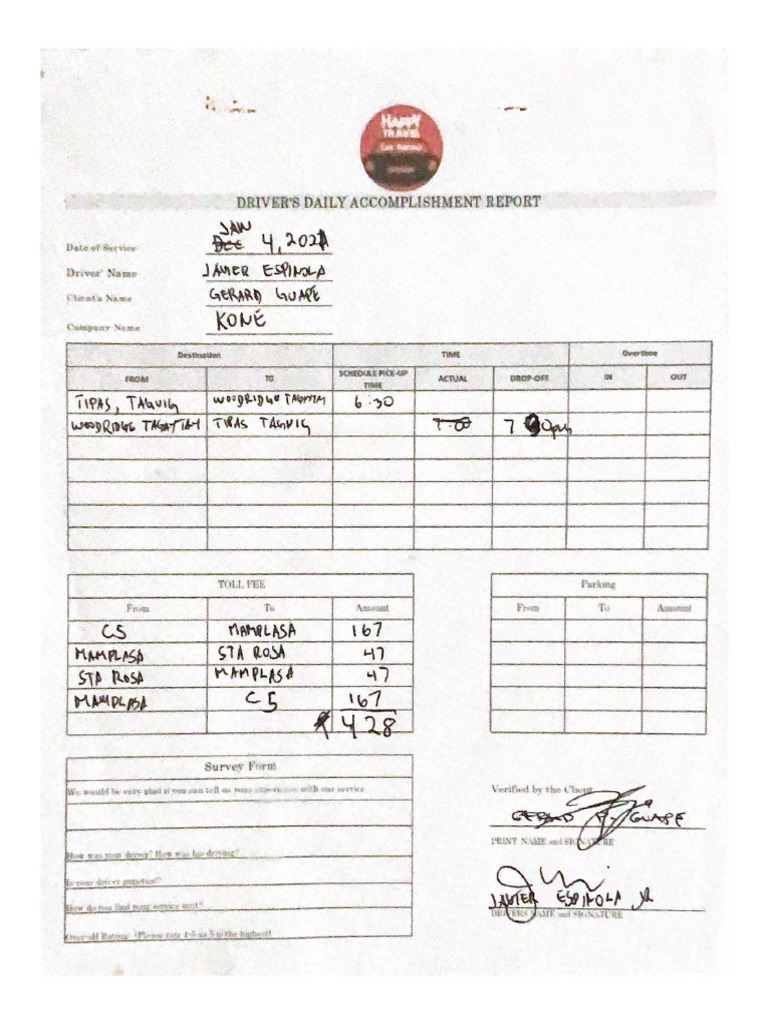 HAPPY
TRAVEL
Car Rental
DRIVER'S DAILY ACCOMPLISHMENT REPORT
JAN
Date of Service DEC 4, 2021
Driver' Name JAVIER ESPINOLA
Client's Name GERARD GUAPE
Company Name KONE
Destination TIME Overtime
FROM TO SCHEDULE PICK-UP TIME ACTUAL DROP-OFF IN OUT
TIPAS, TAGUIG WOODRIDGE TAGAYTAY 6:30
WOODRIDGE TAGAYTAY TIPAS TAGUIG 7:00 7 00pm
TOLL FEE Parking
From To Amount From To Amount
C5 MAMPLASA 167
MAMPLASA STA ROSA 47
STA ROSA MAMPLASA 47
MAMPLASA C5 167
₱ 428
Survey Form
We would be very glad if you can tell us your experience with our service
Verified by the Client
GERARD P. GUAPE
PRINT NAME and SIGNATURE
How was your driver? How was his driving?
Is your driver punctual?
How do you find your service unit?
JAVIER ESPINOLA JR
DRIVERS NAME and SIGNATURE
Over-all Rating: (Please rate 1-5 as 5 is the highest)